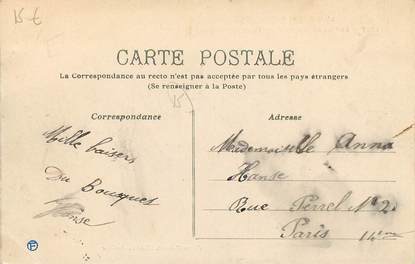 15 €
CARTE POSTALE
La Correspondance au recto n'est pas acceptée par tous les pays étrangers
(Se renseigner à la Poste)
15
Correspondance
Mille baisers
Du
Hanse
Adresse
Mademoiselle Anna
Hanse
Rue Perrel N° 2
Paris 14em